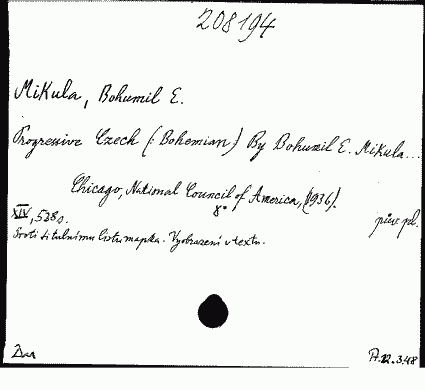 208194
Mikula, Bohumil E.
Progressive Czech (:Bohemian:) By Bohumil E. Mikula...
Chicago, National Council of America, (1936).
8°
XIV, 538 s. pův. pl.
Proti titulnímu listu mapka. Vyobrazení v textu.
A. 22.3.48